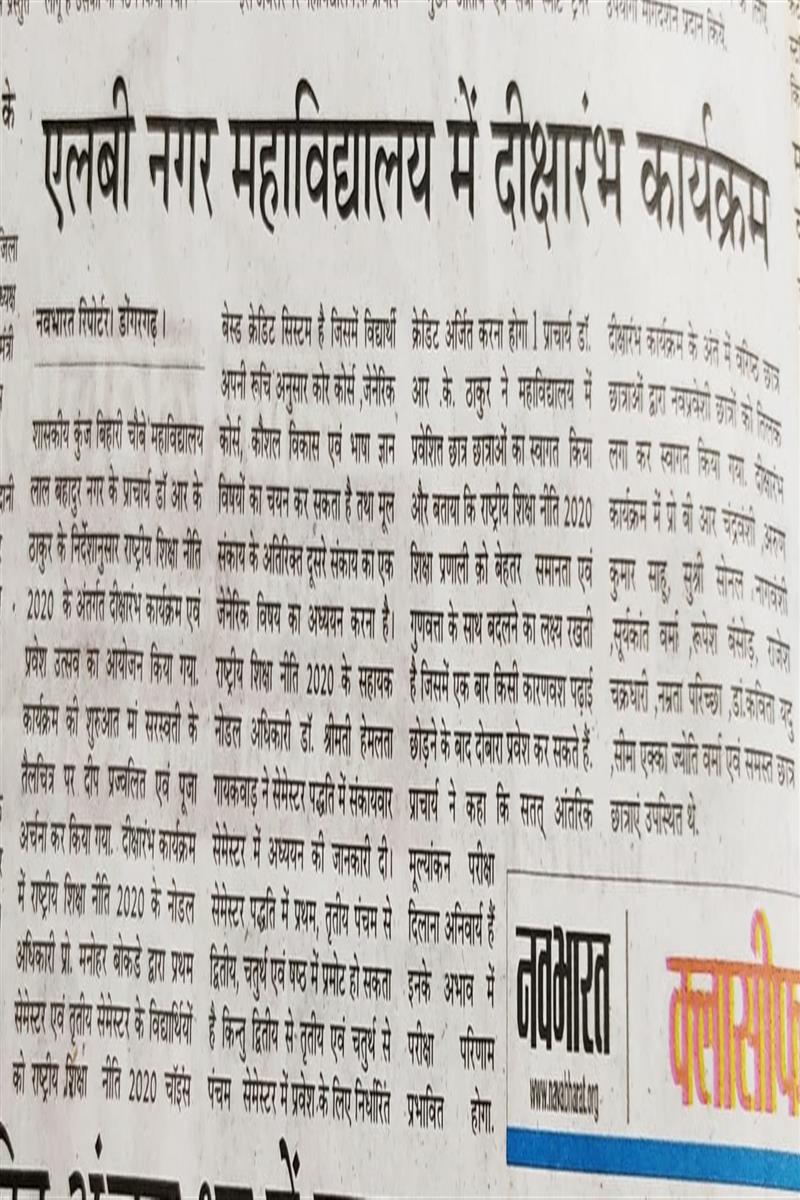 एलबी नगर महाविद्यालय में दीक्षारंभ कार्यक्रम
नवभारत रिपोर्टर। डोंगरगढ़।
शासकीय कुंज बिहारी चौबे महाविद्यालय
लाल बहादुर नगर के प्राचार्य डॉ आर के
ठाकुर के निर्देशानुसार राष्ट्रीय शिक्षा नीति
2020 के अंतर्गत दीक्षारंभ कार्यक्रम एवं
प्रवेश उत्सव का आयोजन किया गया.
कार्यक्रम की शुरुआत मां सरस्वती के
तैलचित्र पर दीप प्रज्वलित एवं पूजा
अर्चना कर किया गया. दीक्षारंभ कार्यक्रम
में राष्ट्रीय शिक्षा नीति 2020 के नोडल
अधिकारी प्रो. मनोहर बोकडे द्वारा प्रथम
सेमेस्टर एवं तृतीय सेमेस्टर के विद्यार्थियों
को राष्ट्रीय शिक्षा नीति 2020 चॉइंस
बेस्ड क्रेडिट सिस्टम है जिसमें विद्यार्थी
अपनी रूचि अनुसार कोर कोर्स ,जेनेरिक
कोर्स, कौशल विकास एवं भाषा ज्ञान
विषयों का चयन कर सकता है तथा मूल
संकाय के अतिरिक्त दूसरे संकाय का एक
जेनेरिक विषय का अध्ययन करना है।
राष्ट्रीय शिक्षा नीति 2020 के सहायक
नोडल अधिकारी डॉ. श्रीमती हेमलता
गायकवाड़ ने सेमेस्टर पद्धति में संकायवार
सेमेस्टर में अध्ययन की जानकारी दी।
सेमेस्टर पद्धति में प्रथम, तृतीय पंचम से
द्वितीय, चतुर्थ एवं षष्ठ में प्रमोट हो सकता
है किन्तु द्वितीय से तृतीय एवं चतुर्थ से
पंचम सेमेस्टर में प्रवेश के लिए निर्धारित
क्रेडिट अर्जित करना होगा l प्राचार्य डॉ.
आर .के. ठाकुर ने महाविद्यालय में
प्रवेशित छात्र छात्राओं का स्वागत किया
और बताया कि राष्ट्रीय शिक्षा नीति 2020
शिक्षा प्रणाली को बेहतर समानता एवं
गुणवत्ता के साथ बदलने का लक्ष्य रखती
है जिसमें एक बार किसी कारणवश पढ़ाई
छोड़ने के बाद दोबारा प्रवेश कर सकते हैं.
प्राचार्य ने कहा कि सतत् आंतरिक
मूल्यांकन परीक्षा
दिलाना अनिवार्य हैं
इनके अभाव में
परीक्षा परिणाम
प्रभावित होगा.
दीक्षारंभ कार्यक्रम के अंत में वरिष्ठ छात्र
छात्राओं द्वारा नवप्रवेशी छात्रों को तिलक
लगा कर स्वागत किया गया. दीक्षारंभ
कार्यक्रम में प्रो बी आर चंद्रवंशी ,अरुण
कुमार साहू, सुश्री सोनल ,नागवंशी
,सूर्यकांत वर्मा ,रूपेश बंसोड़, राजेश
चक्रधारी ,नम्रता परिच्छा ,डॉ.कविता यदु
,सीमा एक्का ज्योति वर्मा एवं समस्त छात्र
छात्राएं उपस्थित थे.
नवभारत
www.navabharat.org